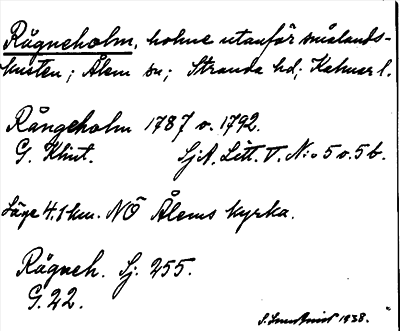 Rågneholm, holme utanför smålands-
kusten; Ålem sn; Stranda hd; Kalmar l.
Rångeholm 1787 o. 1792.
G. Klint. SjA. Litt. T. N:o 5 o. 5 b.
Läge 4.1 km. NÖ Ålems kyrka.
Rågneh. Sj. 255.
G. 22.
1938.